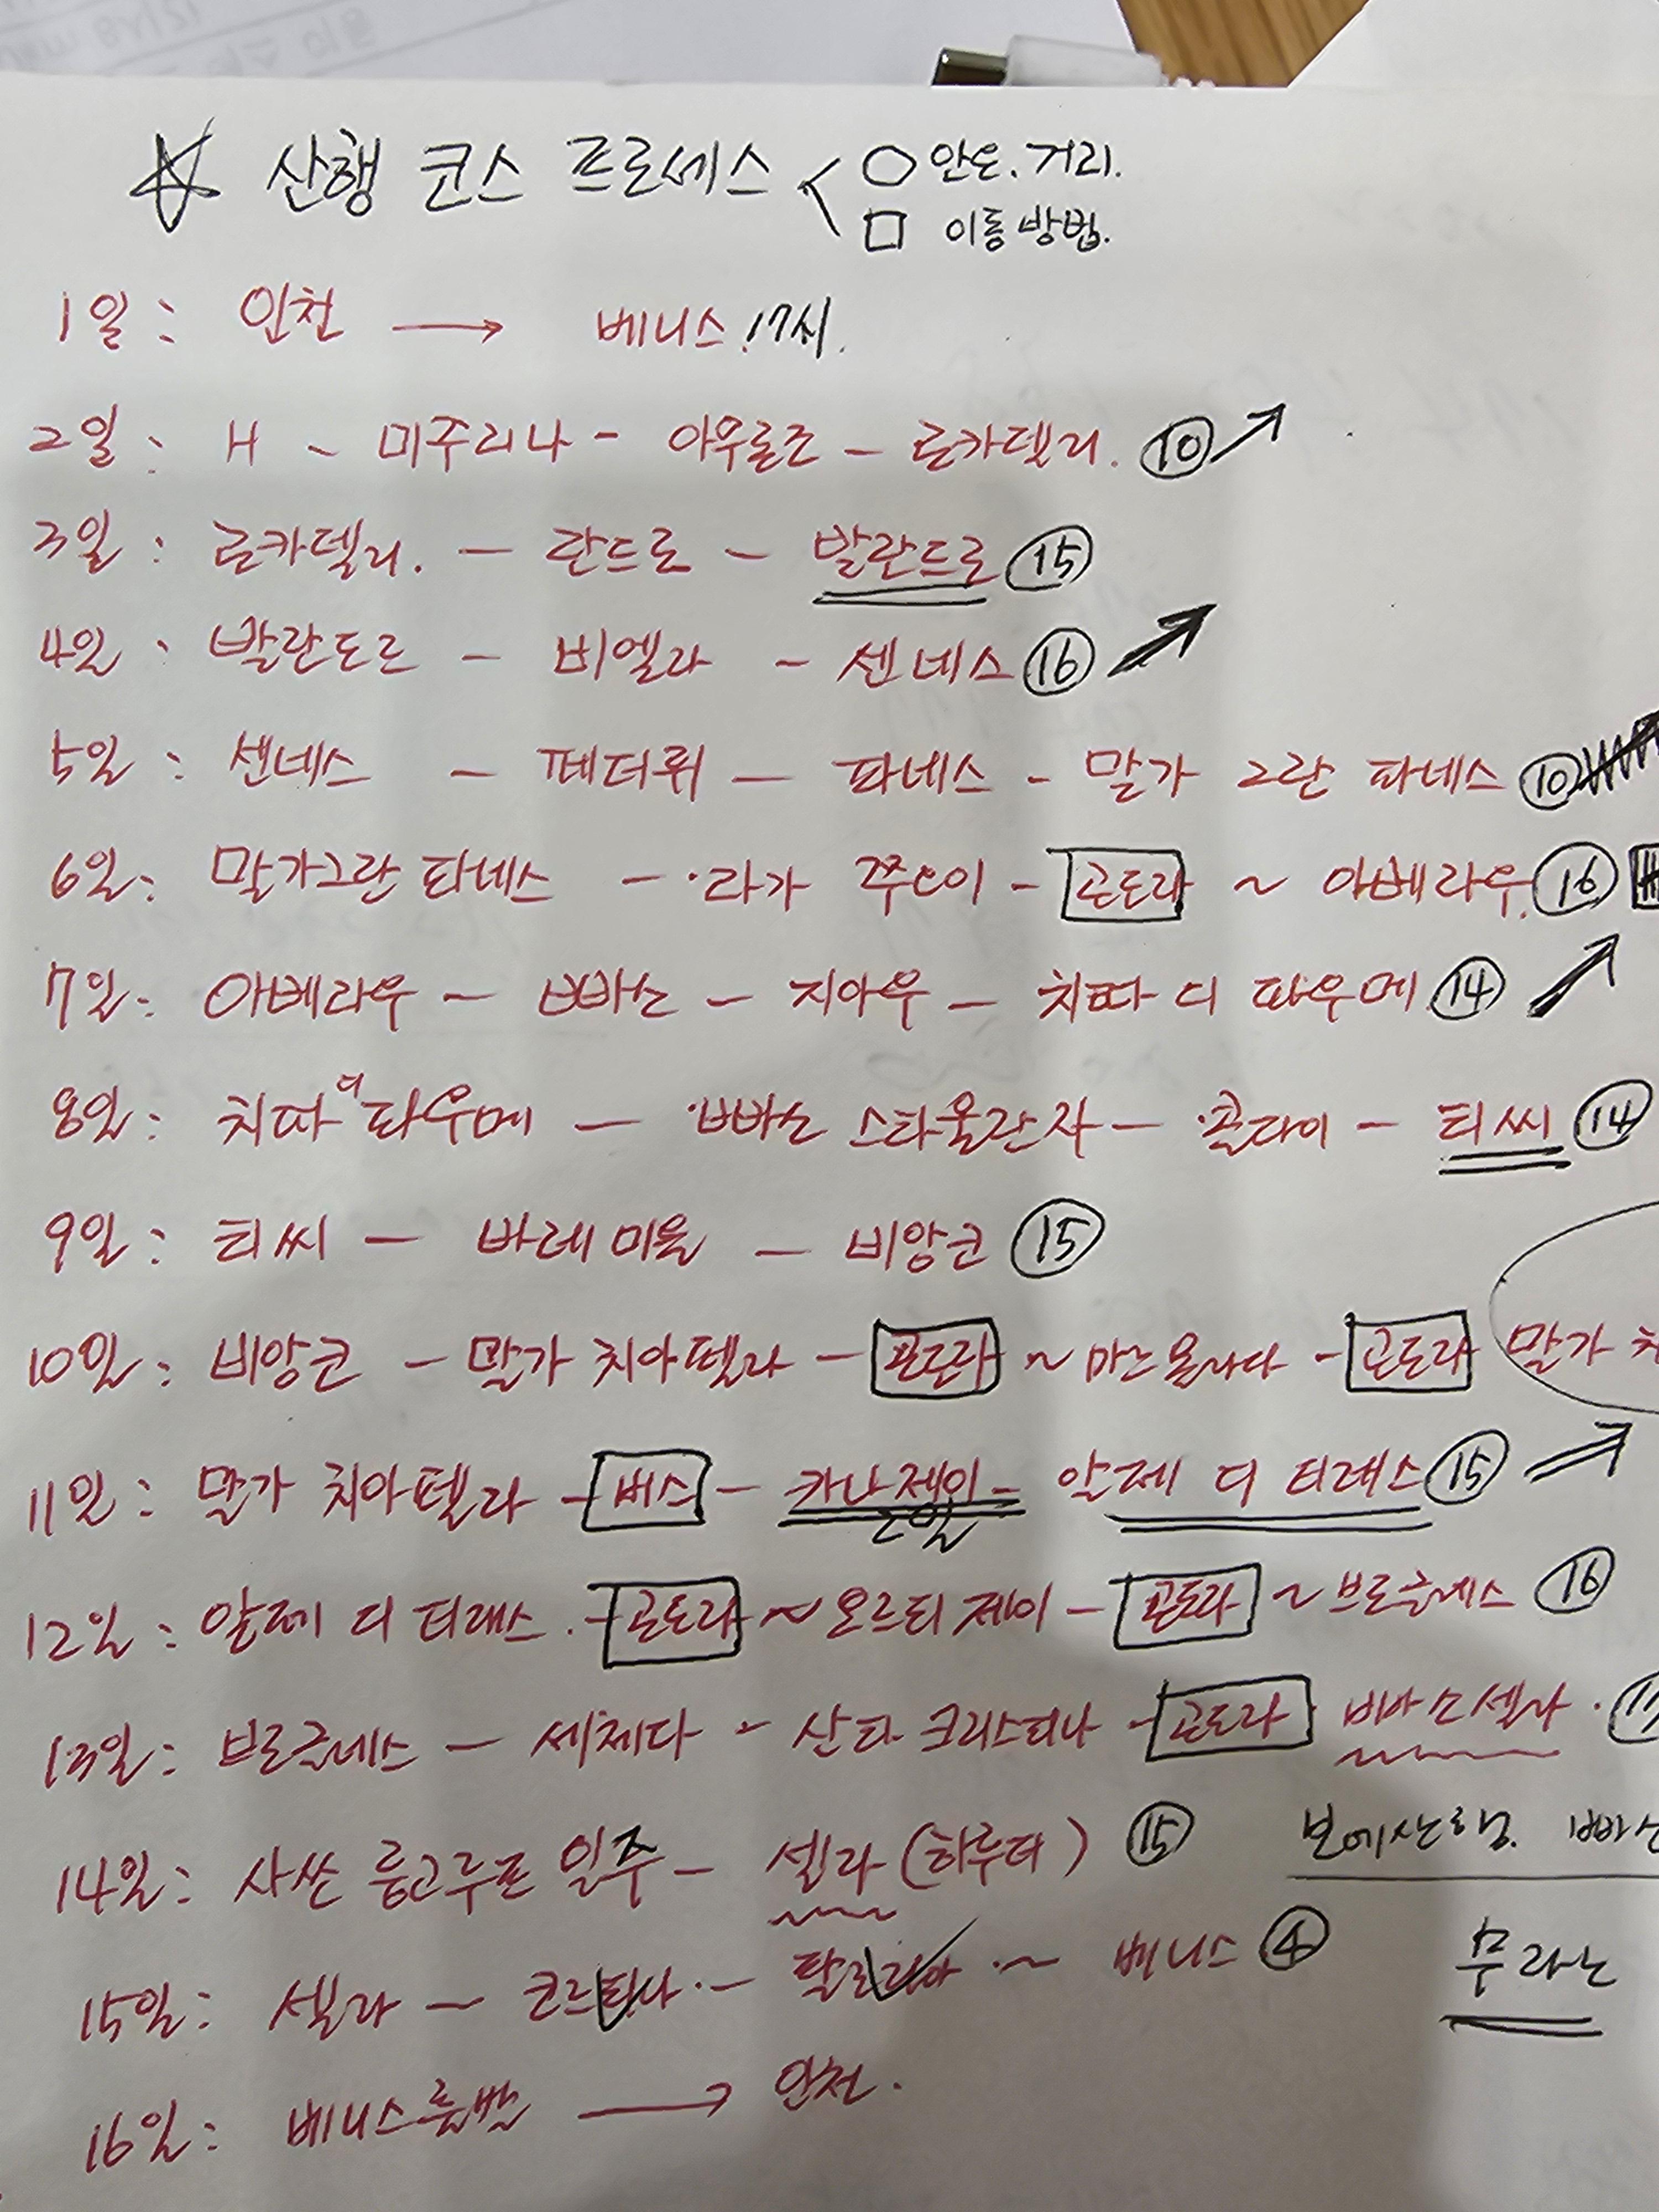 ☆ 산행 코스 프로세스 < ○ 안은. 거리.
□ 이동방법.
1일: 인천 → 베니스. 17시.
2일: H ~ 미주리나 - 아우론조 - 로카델리. ⑩ ↗
3일: 로카델리. - 란드로 - 발란드로 ⑮
4일: 발란도르 - 비엘라 - 센네스 ⑯ ↗
5일: 센네스 - 페더뤼 - 파네스 - 말가 그란 파네스 ⑩
6일: 말가그란 파네스 - 라가 쭈오이 - 곤도라 ~ 아베라우. ⑯
7일: 아베라우 - 빠쏘 - 지아우 - 치따 디 파우메 ⑭ ↗
8일: 치따 디 파우메 - 빠쏘 스타울란자 - 콜다이 - 티씨 ⑭
9일: 티씨 - 바레 미올 - 비앙코 ⑮
10일: 비앙코 - 말가 치아펠라 - 곤도라 ~ 마르몰라다 - 곤도라 말가 치
11일: 말가 치아펠라 - 버스 - 카나제이 - 알페 디 티레스 ⑮ ↗
2일
12일: 알페 디 티레스. - 곤도라 ~ 오르티제이 - 곤도라 ~ 브로글레스 ⑯
13일: 브로글레스 - 세체다 - 산타 크리스티나 - 곤도라 빠쏘셀라.
14일: 사쏘 룽고루프 일주 - 셀라 (하루더) ⑮
무라노
15일: 셀라 - 코르티나. - 팔로리아 ~ 베니스 ④
16일: 베니스출발 → 인천.